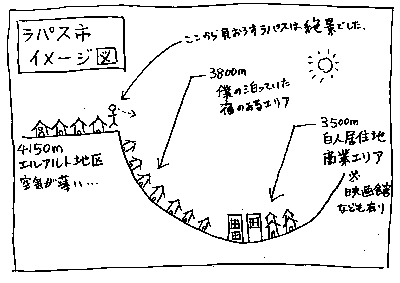 ラパス市
イメージ図
ここから見おろすラパスは絶景でした。
3800m
僕の泊っていた
宿のあるエリア
3500m
白人居住地
商業エリア
※
映画館
なども有り
4150m
エルアルト地区
空気が薄い…